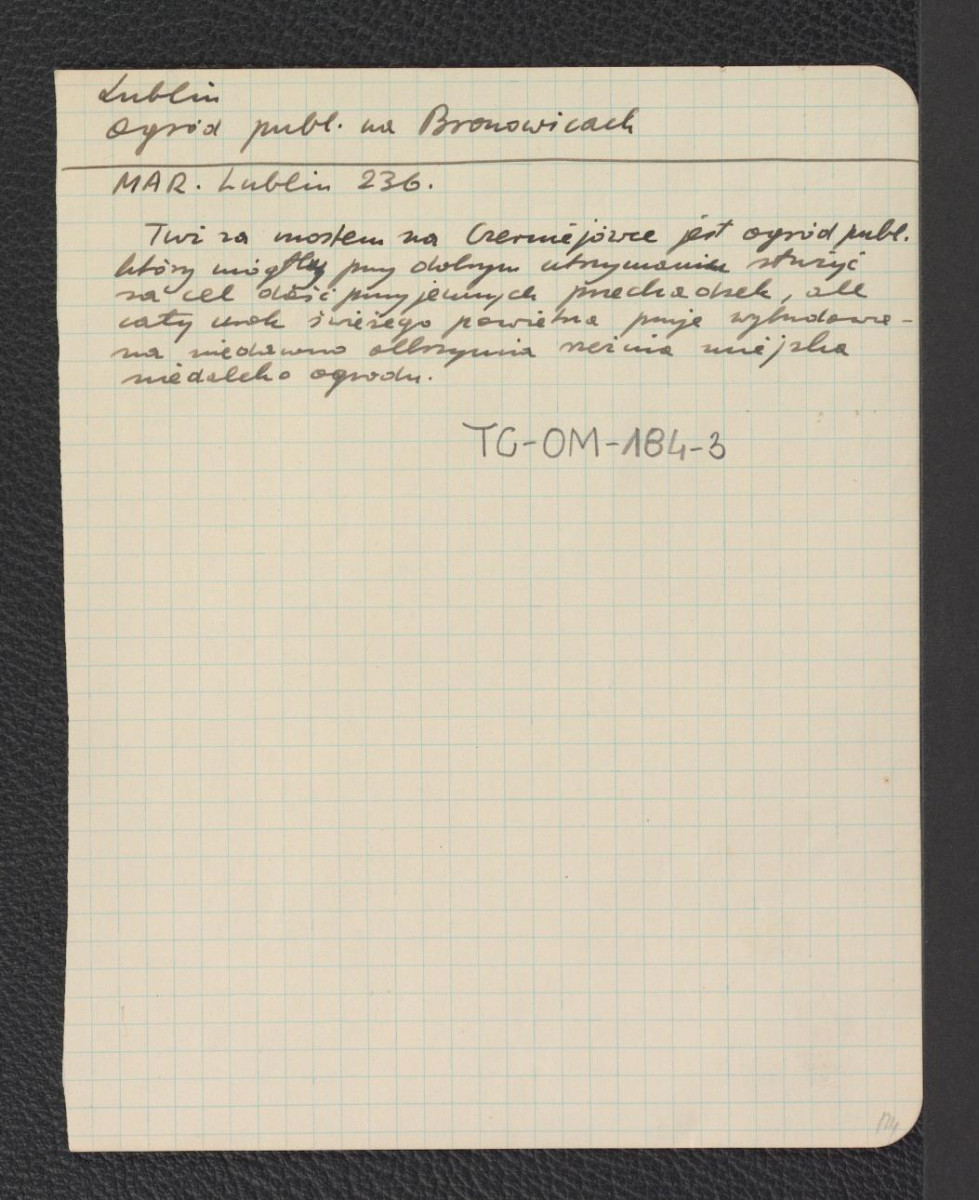 Lublin
Ogród publ. na Bronowicach
MAR. Lublin 236.
Tuż za mostem na Czerniejówce jest ogród publ.
który mógłby przy dobrym utrzymaniu służyć
za cel dość przyjemnych przechadzek, ale
cały urok świeżego powietrza psuje wybudowa-
na niedawno olbrzymia rzeźnia miejska
niedaleko ogrodu.
TG-OM-184-3